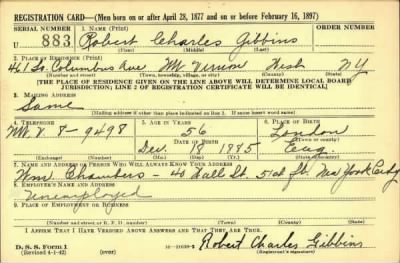 REGISTRATION CARD—(Men born on or after April 28, 1877 and on or before February 16, 1897)
SERIAL NUMBER 1. NAME (Print) ORDER NUMBER
U 883 Robert Charles Gibbins
(First) (Middle) (Last)
2. PLACE OF RESIDENCE (Print)
461 So. Columbus Ave Mt. Vernon West. N Y
(Number and street) (Town, township, village, or city) (County) (State)
[THE PLACE OF RESIDENCE GIVEN ON THE LINE ABOVE WILL DETERMINE LOCAL BOARD
JURISDICTION; LINE 2 OF REGISTRATION CERTIFICATE WILL BE IDENTICAL]
3. MAILING ADDRESS
Same
(Mailing address if other than place indicated on line 2. If same insert word same)
4. TELEPHONE 5. AGE IN YEARS 6. PLACE OF BIRTH
56 London
MT. V. 8-9498 DATE OF BIRTH (Town or county)
Dec. 18 1885 Eng.
(Exchange) (Number) (Mo.) (Day) (Yr.) (State or country)
7. NAME AND ADDRESS OF PERSON WHO WILL ALWAYS KNOW YOUR ADDRESS
Wm. Chambers - 40 Wall St. 51st fl. New York City
8. EMPLOYER'S NAME AND ADDRESS
Unemployed
9. PLACE OF EMPLOYMENT OR BUSINESS
(Number and street or R. F. D. number) (Town) (County) (State)
I AFFIRM THAT I HAVE VERIFIED ABOVE ANSWERS AND THAT THEY ARE TRUE.
D. S. S. Form 1
(Revised 4-1-42) (over) Robert Charles Gibbins
(Registrant's signature)